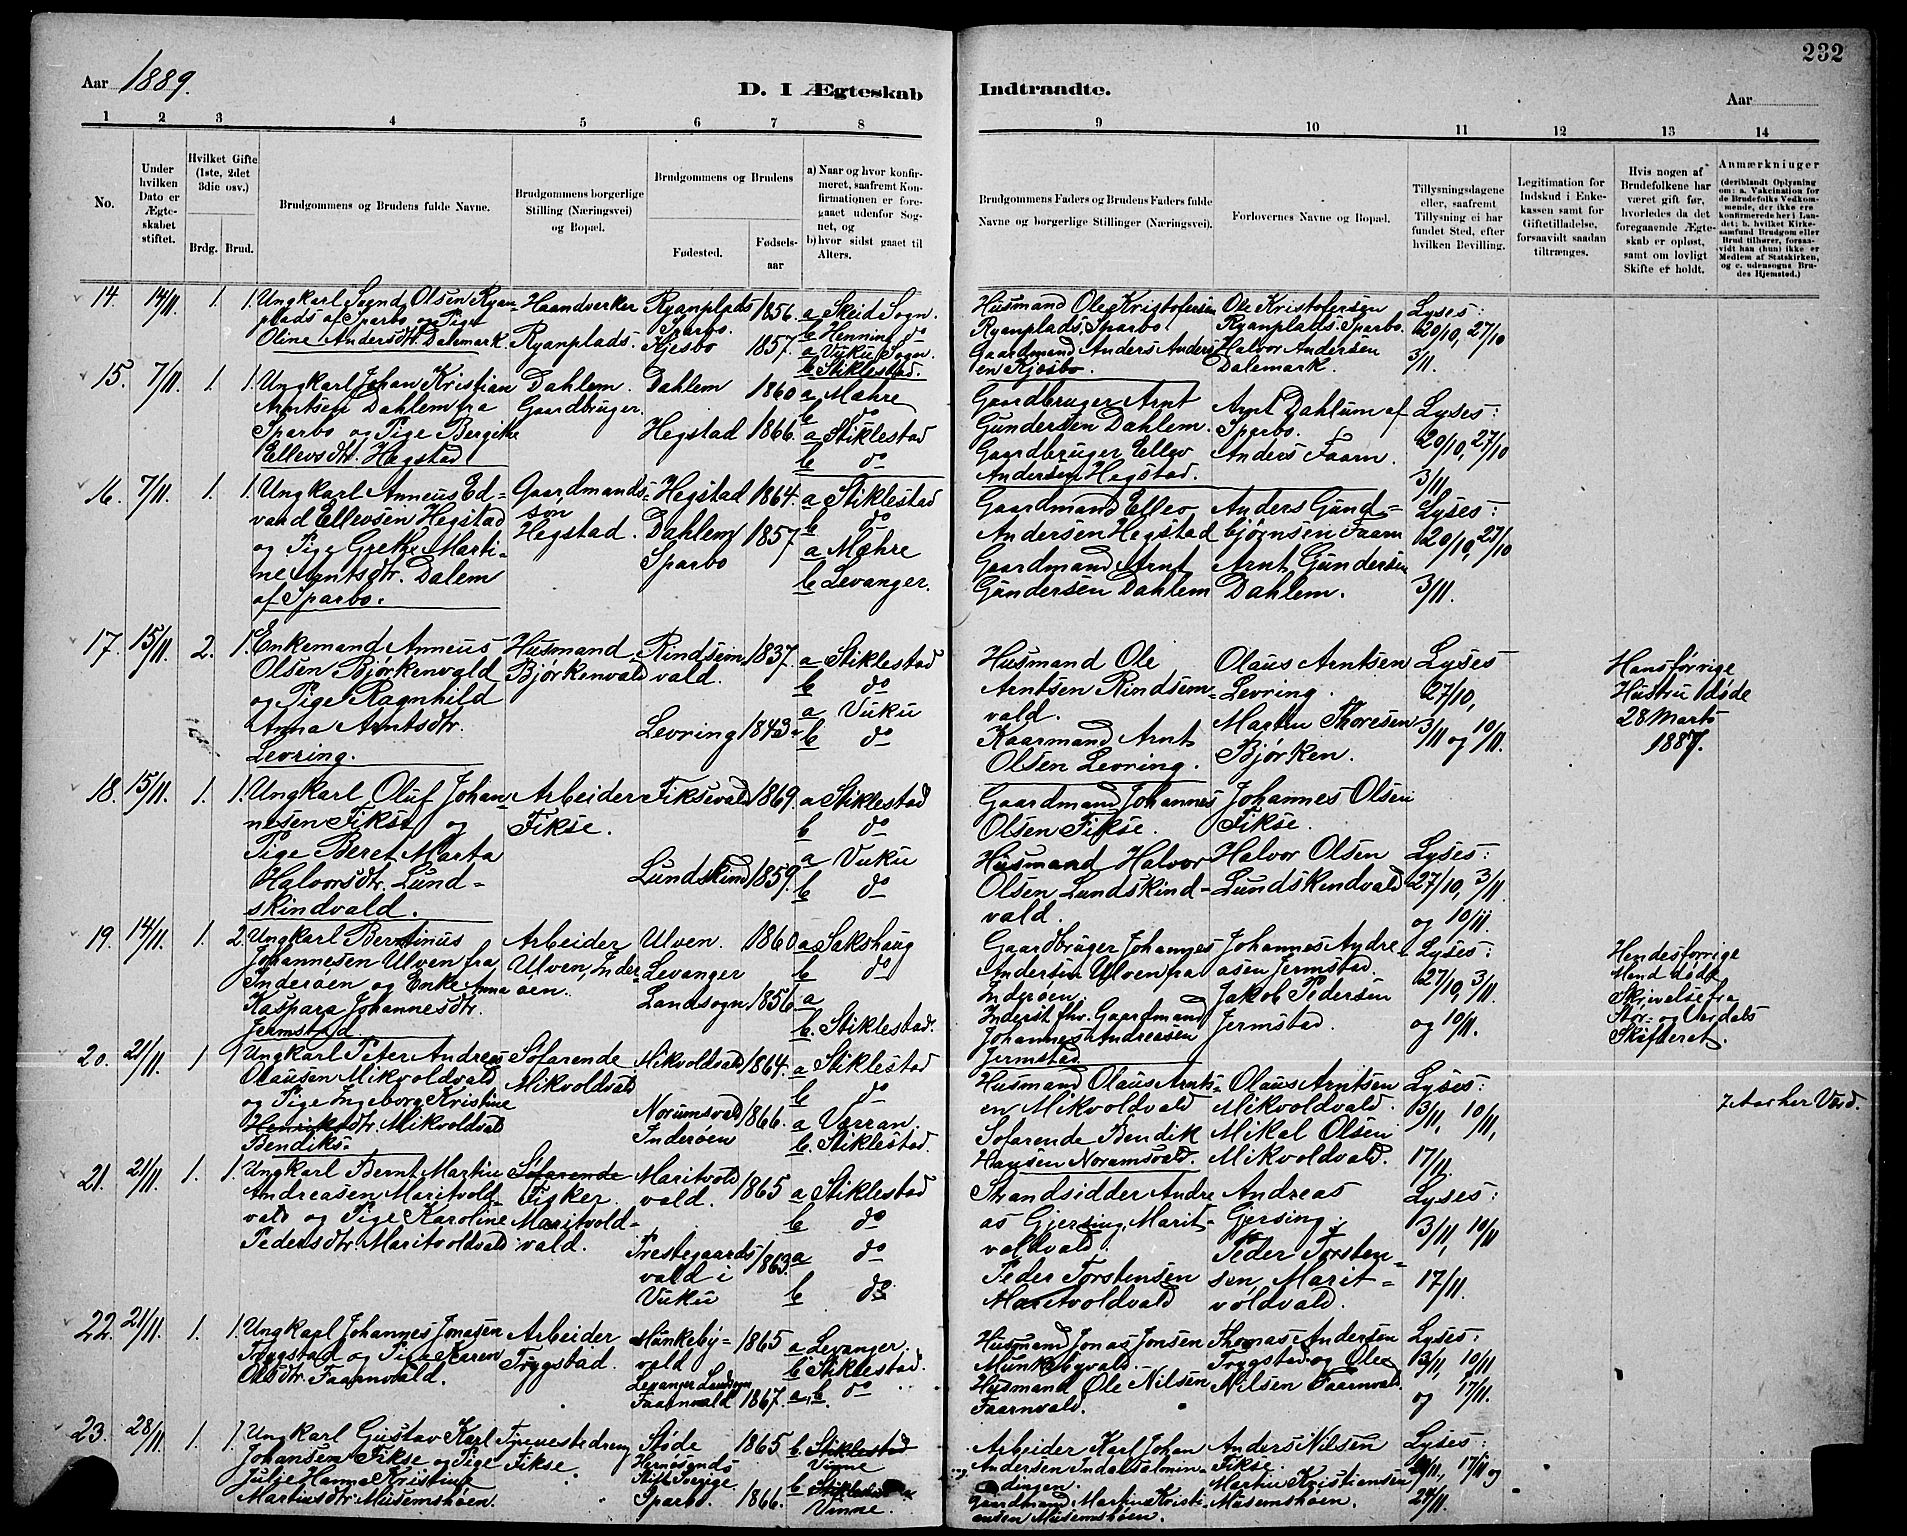 232
Aar 1889.
D. I Ægteskab Indtraadte.
Aar
1 2 3 4 5 6 7 8 9 10 11 12 13 14
No.
Under hvilken Dato er Ægteskabet stiftet.
Hvilket Gifte (1ste, 2det 3die osv.)
Brdg. Brud.
Brudgommens og Brudens fulde Navne.
Brudgommens borgerlige Stilling (Næringsvei) og Bopæl.
Brudgommens og Brudens
Fødested. Fødselsaar
a) Naar og hvor konfirmeret, saafremt Konfirmationen er foregaaet udenfor Sognet, og
b) hvor sidst gaaet til Alters.
Brudgommens Faders og Brudens Faders fulde Navne og borgerlige Stillinger (Næringsvei).
Forlovernes Navne og Bopæl.
Tillysningsdagene eller, saafremt Tillysning ei har fundet Sted, efter hvilken Bevilling.
Legitimation for Indskud i Enkekassen samt for Giftetilladelse, forsaavidt saadan tiltrænges.
Hvis nogen af Brudefolkene har været gift før, hvorledes da det foregaaende Ægteskab er opløst, samt om lovligt Skifte er holdt.
Anmærkninger (deriblandt Oplysning om: a. Vakcination for de Brudefolks Vedkommende, der ikke ere konfirmerede her i Landet; b. hvilket Kirkesamfund Brudgom eller Brud tilhører, forsaavidt han (hun) ikke er Medlem af Statskirken, og c. udensogns Brudes Hjemsted.)
14. 14/11. 1. 1.
Ungkarl Sagnd Olsen Ryan-
plads af Sparbo og Pige
Oline Andersdtr. Dalemark.
Haandverker
Ryanplads.
Ryanplads 1856.
Sparbo.
Kjesbo 1857.
a Skeid Sogn.
b Henning do
a Vuku Sogn.
b Stiklestad.
Husmand Ole Kristofersen
Ryanplads, Sparbo
Gaardmand Anders Anders
en Kjesbo.
Ole Kristofersen
Ryanplads. Sparbo.
Halvor Andersen
Dalemark.
Lyses:
20/10, 27/10
3/11.
15. 7/11. 1. 1.
Ungkarl Johan Kristian
Arntsen Dahlem fra
Sparbo og Pige Bergitte
Ellevsdtr. Hegstad
Dahlem.
Gaardbruger.
Dahlem 1860
Hegstad 1866.
a Mæhre
b do
a Stiklestad
b do
Gaardbruger Arnt
Gundersen Dahlem.
Gaardbruger Ellev
Andersen Hegstad.
Arnt Dahlum af
Sparbo.
Anders Faarn.
Lyses:
20/10, 27/10
3/11
16. 7/11. 1. 1.
Ungkarl Anneus Ed-
vard Ellevsen Hegstad
og Pige Gjetke Marti-
ne Arntsdtr. Dalem
af Sparbo.
Gaardmands-
søn
Hegstad.
Hegstad 1864.
Dahlem 1857.
Sparbo
a Stiklestad
b do
a Mæhre
b Levanger.
Gaardmand Ellev
Andersen Hegstad
Gaardmand Arnt
Gundersen Dahlem
Anders Gund-
bjørnsen Faarn
Arnt Gundersen
Dahlem.
Lyses:
20/10, 27/10
3/11.
17. 15/11. 2. 1.
Enkemand Anneus
Olsen Bjørkenvald
og Pige Ragnhild
Anna Arntsdtr.
Levring.
Husmand
Bjørkenvald
Rindsem- 1837.
vald.
Levring 1843.
a Stiklestad
b do
a Vuku
b do
Husmand Ole
Arntsen Rindsem-
vald.
Kaarmand Arnt
Olsen Levring.
Olaus Arntsen
Levring.
Martin Thoresen
Bjørken.
Lyses
27/10,
3/11 og 10/11.
Hans forrige
Hustru døde
28 Marts
1887.
18. 15/11. 1. 1.
Ungkarl Oluf Johan-
nesen Fikse og
Pige Beret Marta
Halvorsdtr. Lund-
skindvald.
Arbeider
Fikse.
Fiksevald 1869.
Lundskind 1859.
a Stiklestad
b do
a Vuku
b do
Gaardmand Johannes
Olsen Fikse.
Husmand Halvor
Olsen Lundskind-
vald.
Johannes Olsen
Fikse.
Halvor Olsen
Lundskindvald
Lyses:
27/10, 3/11
og 10/11.
19. 14/11. 1. 2.
Ungkarl Berntinus
Johannesen Ulven fra
Inderøen og Enke Anna
Kaspara Johannesdtr.
Jermstad
Arbeider
Ulven, Inder-
øen.
Ulven. 1860.
Levanger
Landsogn 1856.
a Sakshaug
b do
a
b. Stiklestad.
Gaardbruger Johannes
Andersen Ulven fra
Inderøen.
Inderst fhv. Gaardmand
Johannes Andreasen
Jermstad
Johannes Andre
asen Jermstad.
Jakob Pedersen
Jermstad.
Lyses:
27/10, 3/11.
og 10/11.
Hendes forrige
Mand døde
Skrivelse fra
Stør- og Værdals
Skifteret.
20. 21/11. 1 1
Ungkarl Peter Andreas
Olausen Mikvoldvald
og Pige Ingeborg Kristine
Henriksdtr. Mikvoldvald
Bendiks-
Sofarende
Mikvoldvald
Mikvoldvald 1864.
Norumsvald 1866.
Inderøen
a Stiklestad
b do
a Værran.
b. Stiklestad.
Husmand Olaus Arnts-
en Mikvoldvald
Sofarende Bendik
Hansen Noramsvald.
Olaus Arntsen
Mikvoldvald.
Mikal Olsen
Mikvoldvald.
Lyses:
3/11, 10/11,
17/11
7 Aar her Værd.
21. 21/11. 1. 1.
Ungkarl Bernt Martin
Andreasen Maritvold-
vald og Pige Karoline
Pedersdtr. Maritvoldvald
Sofarende
Fisker.
Maritvold-
vald.
Maritvold 1865
vald.
Prestegaards- 1863.
vald i
Vuku
a Stiklestad
b do
a do
b do.
Strandsidder Andre
as Gjersing, Marit-
voldvald.
Peder Torstensen
Maritvoldvald
Andreas
Gjersing.
Peder Torsten-
sen, Marit-
voldvald.
Lyses:
3/11, 10/11
17/11.
22. 21/11. 1. 1.
Ungkarl Johannes Jonasen
Tryggstad og Pige Karen
Olsdtr. Faarnvald.
Arbeider
Tryggstad.
Munkeby- 1865
vald
Levanger Landsogn
Faarnvald 1867.
a Levanger.
b Stiklestad.
a. b. do
Husmand Jonas Jonsen
Munkebyvald.
Husmand Ole Nilsen
Faarnvald.
Thomas Andersen
Tryggstad og Ole
Nilsen Faarnvald.
Lyses:
3/11, 10/11
og 17/11.
23. 28/11. 1. 1.
Ungkarl Gustav Karl
Johansen Fikse og Pige
Julie Hanna Kristine
Martinusdtr. Musemshøen.
Tjenestedreng
Fikse.
Støde 1865
Hernøsands
Stift Sverige
Sparbo. 1866.
b. Stiklestad
Vinne
b Stiklestad
Vinne.
Arbeider Karl Johan
Andersen Indal
dingen.
Gaardmand Martin Kristi-
ansen Musemshøen.
Anders Nilsen
Fikse.
Martin Kristiansen
Musemshøen.
Lyses:
17/11 og
24/11.